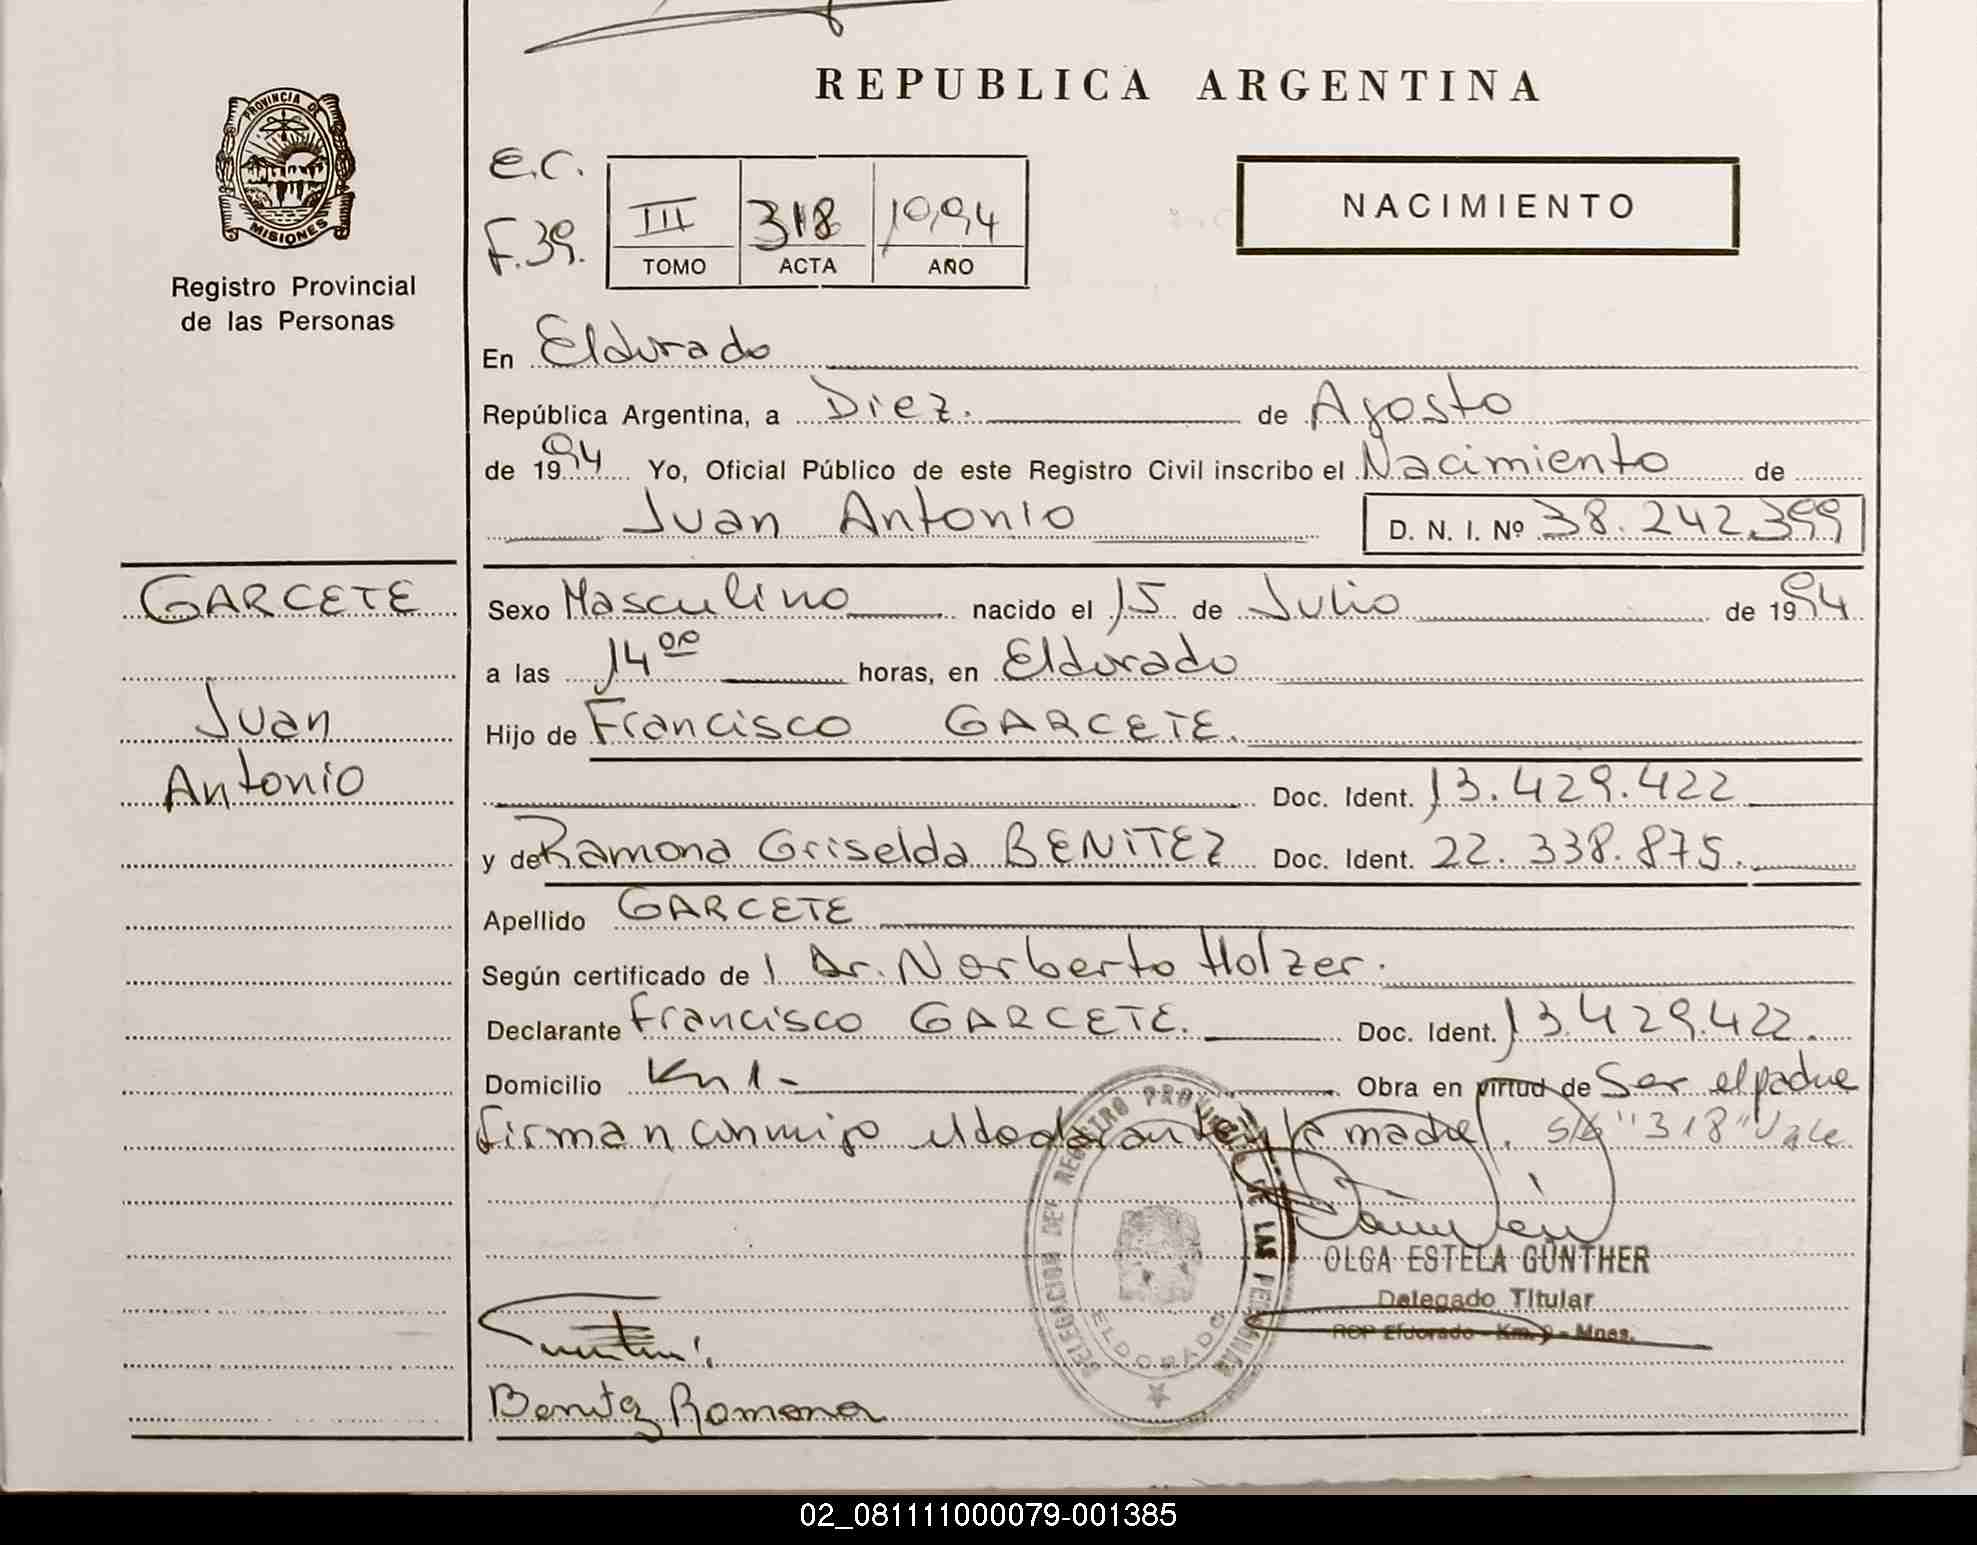 REPUBLICA ARGENTINA
PROVINCIA DE
MISIONES
Registro Provincial
de las Personas
E.C.
F.39.
III 318 1994
TOMO ACTA AÑO
NACIMIENTO
En Eldorado
República Argentina, a Diez. de Agosto
de 1994 Yo, Oficial Público de este Registro Civil inscribo el Nacimiento de
Juan Antonio D. N. I. Nº 38.242.399
GARCETE
Juan
Antonio
Sexo Masculino nacido el 15 de Julio de 1994
a las 14 00 horas, en Eldorado
Hijo de Francisco GARCETE.
Doc. Ident. 13.429.422
y de Ramona Griselda BENITEZ Doc. Ident. 22.338.875.
Apellido GARCETE
Según certificado de l Dr. Norberto Holzer.
Declarante Francisco GARCETE. Doc. Ident. 13.429.422.
Domicilio Km 1- Obra en virtud de Ser el padre
firman conmigo el declarante y la madre. S/b "318" Vale
DELEGACION DEL REGISTRO PROVINCIAL DE LAS PERSONAS
ELDORADO
OLGA ESTELA GÜNTHER
Delegado Titular
RCP Eldorado - Km. 9 - Mnes.
Benitez Ramona
02_081111000079-001385